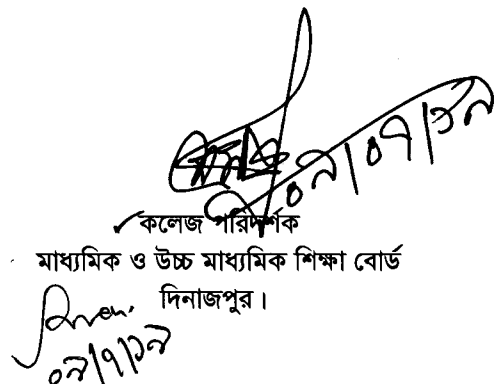 ০৯/০৭/১৯
কলেজ পরিদর্শক
মাধ্যমিক ও উচ্চ মাধ্যমিক শিক্ষা বোর্ড
দিনাজপুর।
০৯/৭/১৯